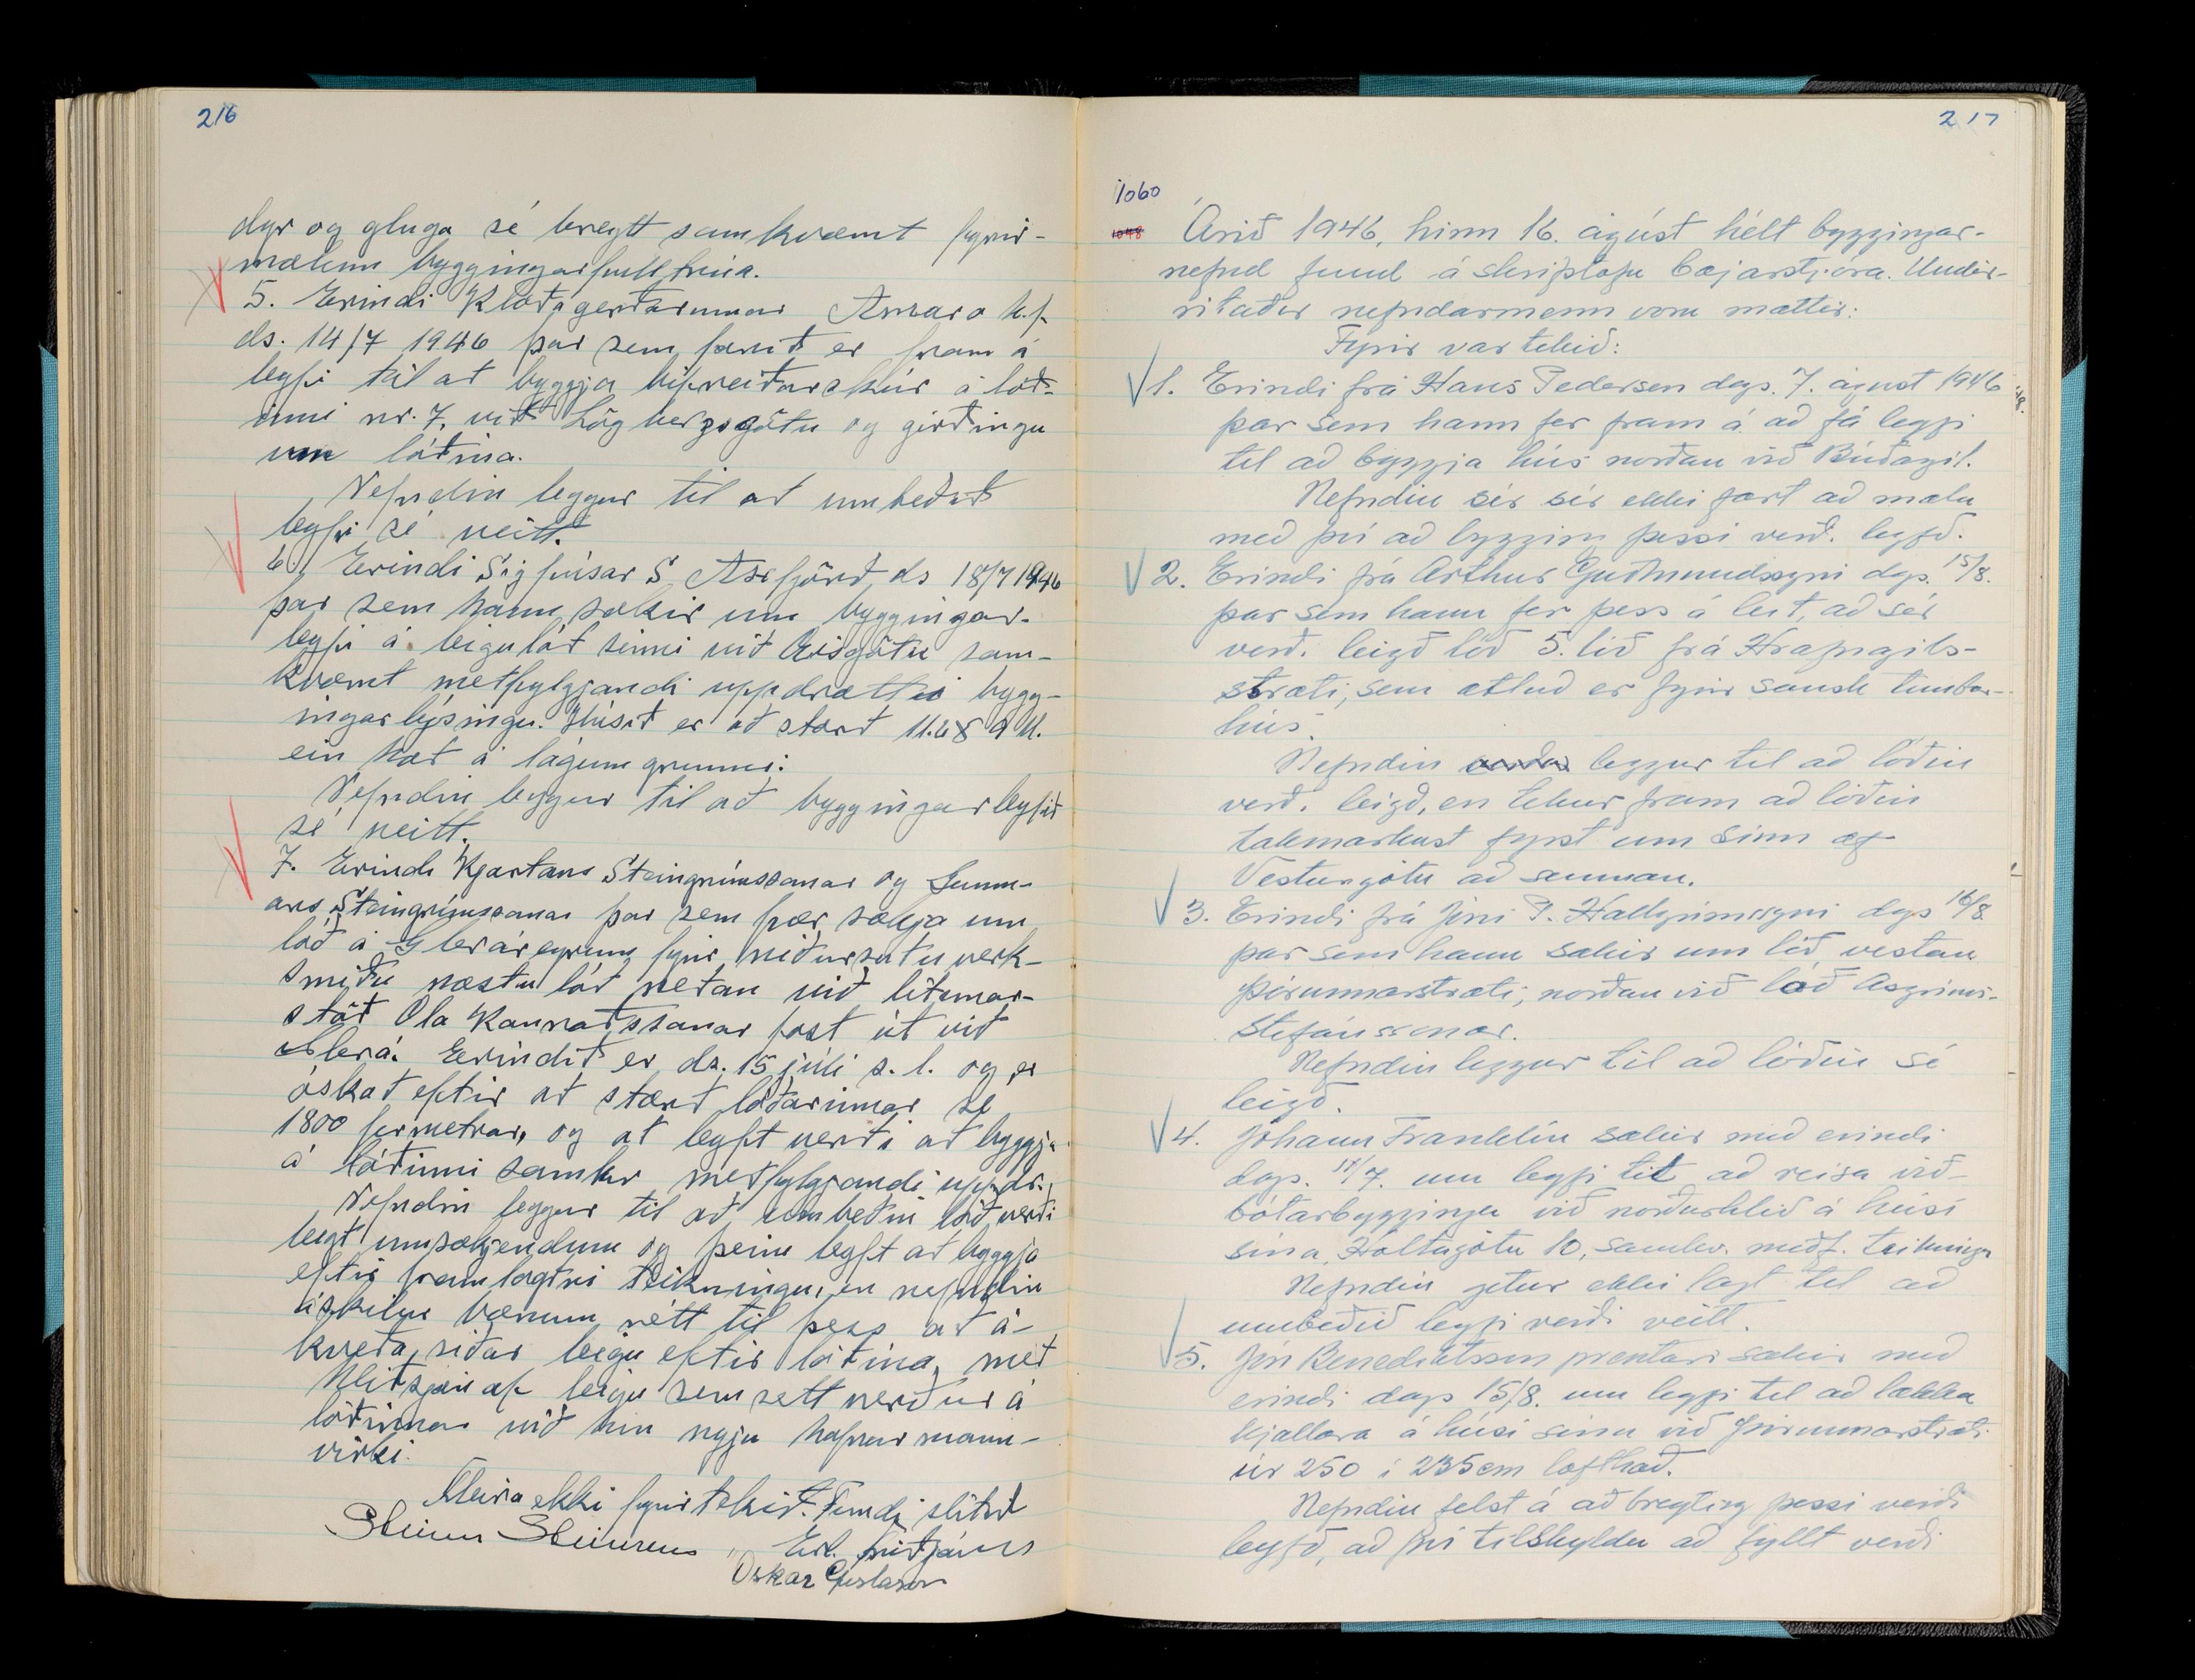 216
dyr og glugga sé breytt samkvæmt fyrir-
mælum byggingarfulltrúa.
5. Erindi Klæðagerðarinnar Amaro h.f.
ds. 14/7 1946 þar sem farið er fram á
leyfi til at byggja bifreiðarskúr á lóð-
inni nr. 7, við Lögbergsgötu og girðingu
um lóðina.
Nefndin leggur til at umbeðið
leyfi sé veitt.
6. Erindi Sigfúsar S. Axfjörð, ds 18/7 1946
þar sem hann sækir um byggingar-
leyfi á leigulóð sinni við Ægisgötu sam-
kvæmt meðfylgjandi uppdrætti bygg-
ingarlýsingu. Húsið er að stærð 11.6 x 9 M.
ein hæð á lágum grunni.
Nefndin leggur til að byggingarleyfið
sé veitt.
7. Erindi Kjartans Steingrímssonar og Gunn-
ars Steingrímssonar þar sem þeir sækja um
lóð á Gleráreyrum fyrir niðursuðuverk-
smiðju næstu lóð neðan við
stöð Óla Konráðssonar fast út við
Glerá. Erindið er ds. 15 júli s.l. og er
óskað eftir at stærð lóðarinnar sé
1800 fermetrar, og at leyft verði at byggja
á lóðinni samkv meðfylgjandi uppdr.
Nefndin leggur til að umbeðin lóð verði
leigt umsækjendum og þeim leyft at byggja
eftir framlagðri teikningu, en nefndin
áskilur bænum rétt til þess at á-
kveða, síðar leigu eftir lóðina, með
hliðsjón af leigu sem sett verður á
lóðirnar við hin nýju hafnarmann-
virki.
Meira ekki fyrir tekið. Fundi slitið
Steinn Steinsen Erl. Friðjónss
Óskar Gíslason
217
1060
1048
Árið 1946, hinn 16. ágúst hélt byggingar-
nefnd fund á skrifstofu bæjarstjóra. Undir-
ritaðir nefndarmenn voru mættir:
Fyrir var tekið:
1. Erindi frá Hans Pedersen dags. 7. ágúst 1946
þar sem hann fer fram á að fá leyfi
til að byggja hús norðan við Búðargil.
Nefndin sér sér ekki fært að mæla
með því að bygging þessi verð. leyfð.
2. Erindi frá Arthur Guðmundssyni dgs. 15/8.
þar sem hann fer þess á leit, að sér
verð. leigð lóð 5. lóð frá Hrafnagils-
stræti, sem ætluð er fyrir sænsk timbur-
hús.
Nefndin leggur til að lóðin
verð. leigð, en tekur fram að lóðin
takmarkast fyrst um sinn af
Vesturgötu að sunnan.
3. Erindi frá Jóni P. Hallgrímssyni dags 16/8
þar sem hann sækir um lóð, vestan
Þórunnarstræti, norðan við lóð Ásgríms-
Stefánssonar.
Nefndin leggur til að lóðin sé
leigð.
4. Jóhann Franklín sækir með erindi
dags. 11/7. um leyfi til að reisa við-
bótarbyggingu við norðurhlið á húsi
sína, Holtagötu 10, samkv. meðf. teikningu
Nefndin getur ekki lagt til að
umbeðið leyfi verði veitt.
5. Jón Benediktsson prentari sækir með
erindi dags 15/8. um leyfi til að lækka
kjallara á húsi sínu við Þórunnarstræti
úr 250 í 235cm lofthæð.
Nefndin felst á að breyting þessi verði
leyfð, að því tilskyldu að fyllt verði